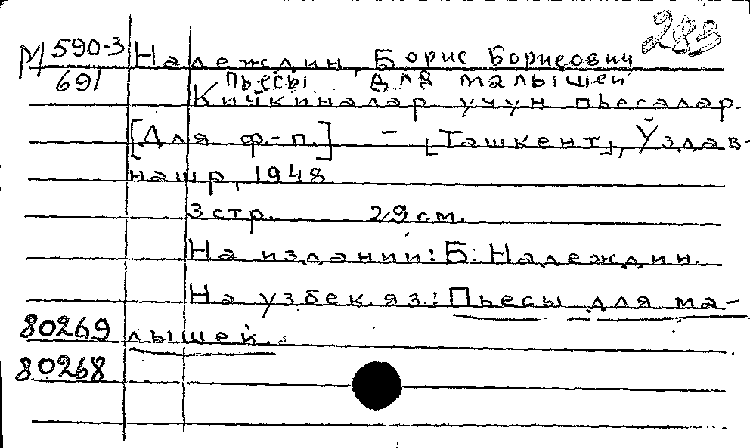 288
М 590-3
691
Надеждин, Борис Борисович
Пьесы для малышей
Кичкиналар учун пьесалар.
[Для ф-п.] - [Ташкент], Ўздав-
нашр, 1948
3 стр. 29 см.
На издании: Б. Надеждин.
На узбек. яз.: Пьесы для ма-
лышей.
80269
80268